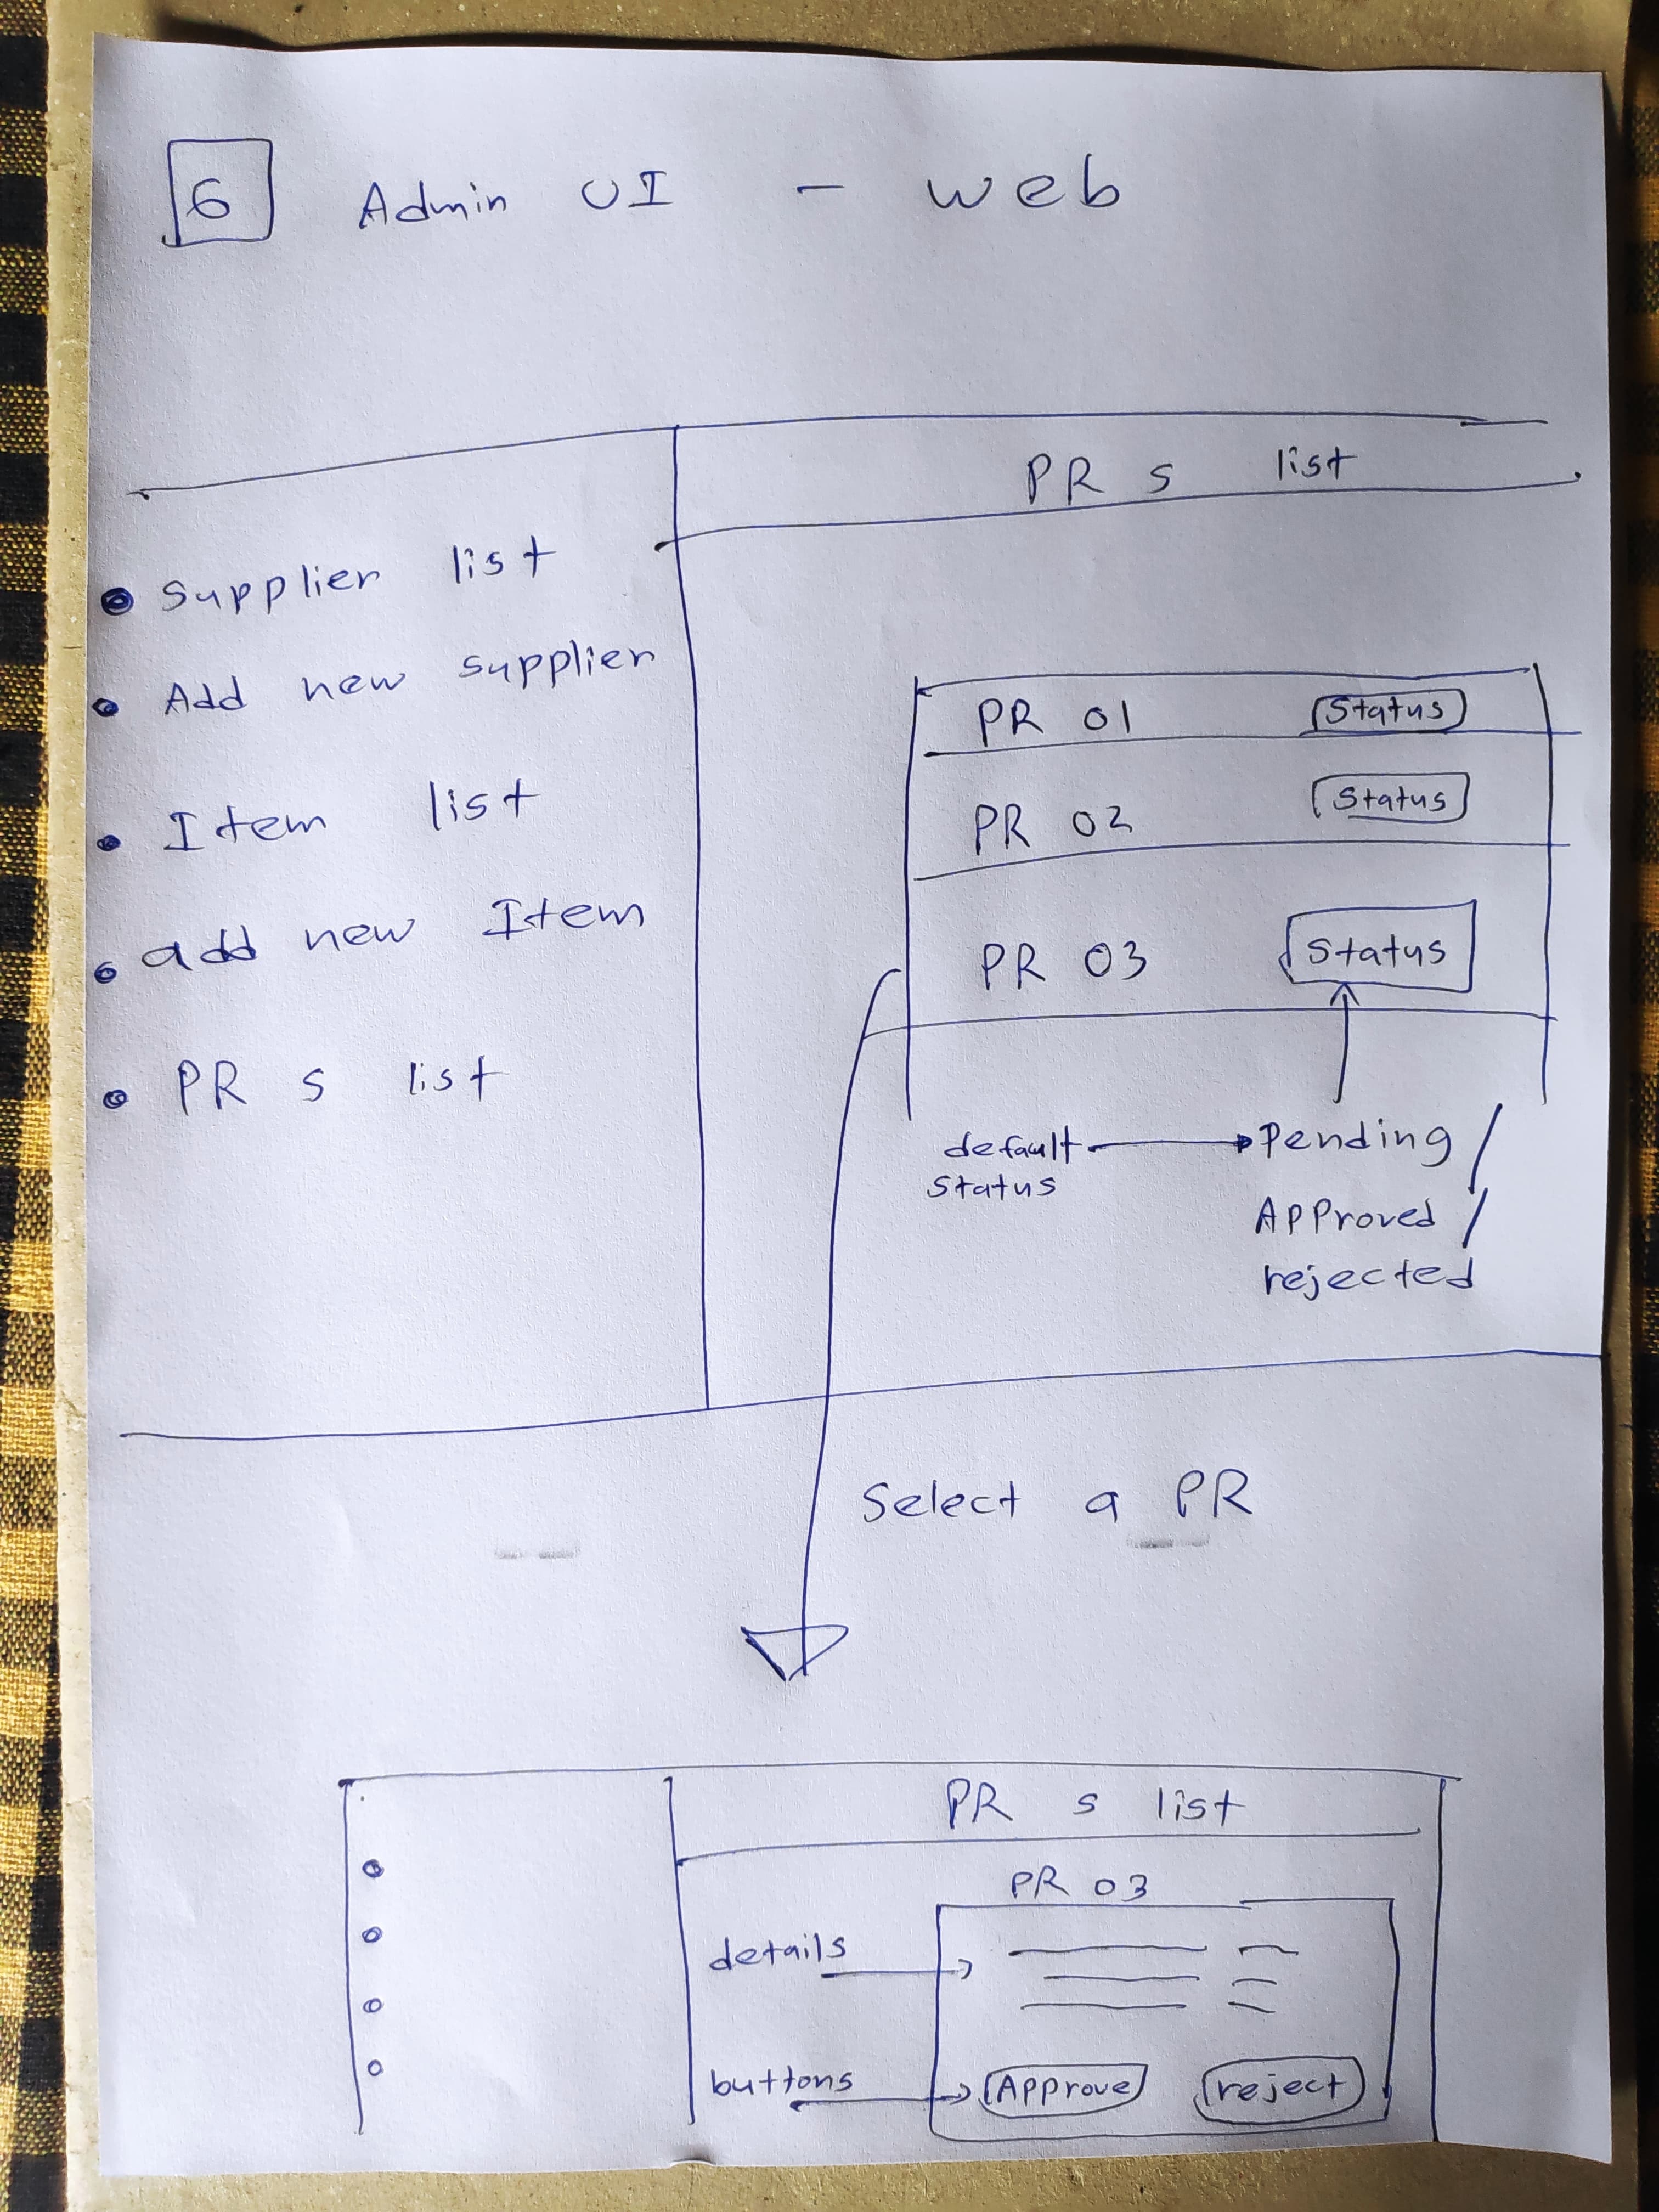 6 Admin UI - web
PR s list
• Supplier list
• Add new supplier
• Item list
• add new Item
• PR s list
PR 01 Status
PR 02 Status
PR 03 Status
default → Pending /
status
Approved /
rejected
Select a PR
PR s list
PR 03
details
buttons Approve reject